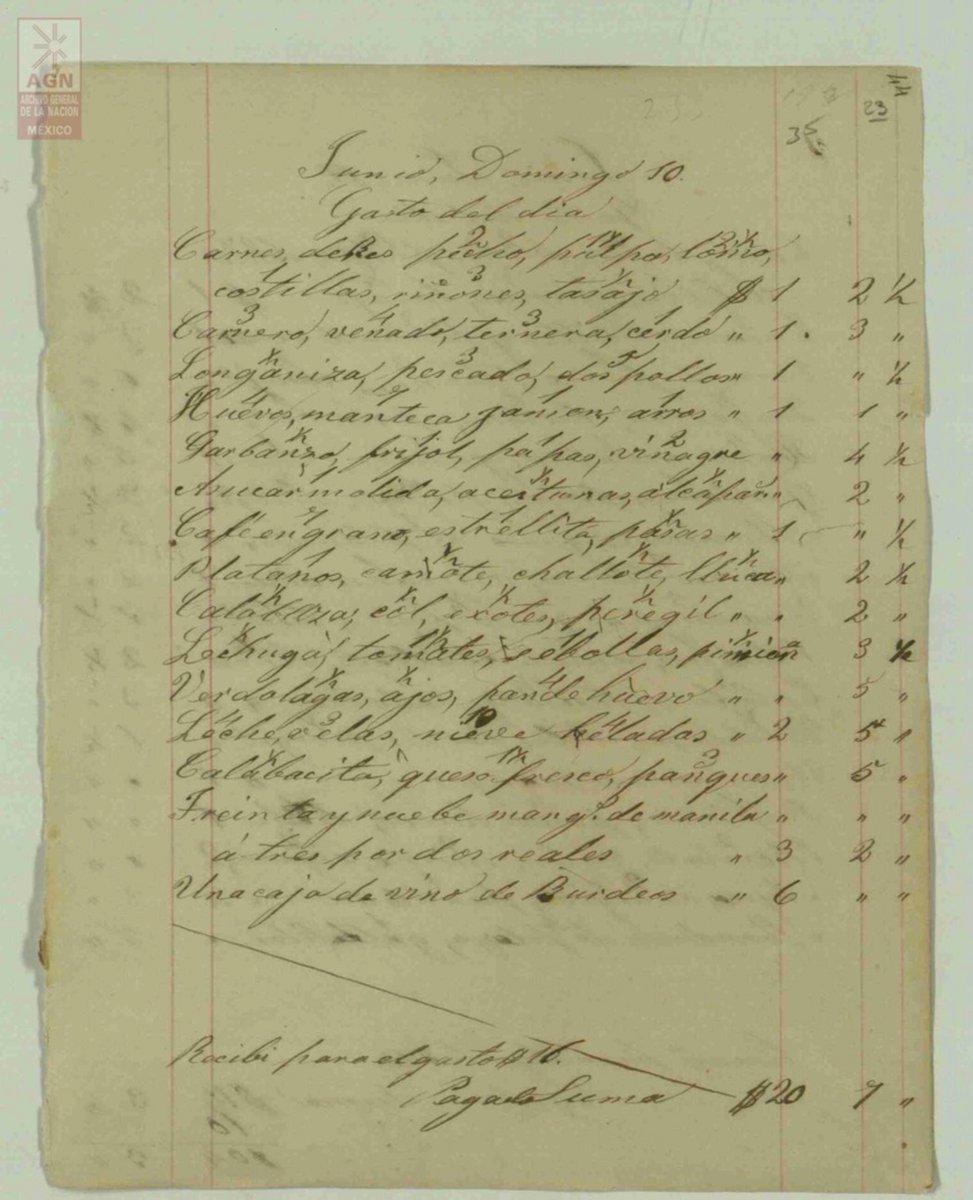 AGN
ARCHIVO GENERAL
DE LA NACION
MÉXICO
44
23
Junio, Domingo 10.
Gasto del dia
Carnes, de Res pecho, pulpa, lomo,
costillas, riñones, tasajo $ 1 2 ½
Carnero, venado, ternera, cerdo " 1. 3 "
Longaniza, pescado, dos pollos " 1 " ½
Huevos, manteca jamon, arros " 1 1 "
Garbanzo, frijol, papas, vinagre " 4 ½
Asucar molida, aceitunas, alcaparr " 2 "
Café en grano, estrellita, pasas " 1 " ½
Platanos, camote, challote, lluca " 2 ½
Calabaza, col, exotes, peregil " " 2 "
Lechuga, tomates, sebollas, pimien 3 ½
Verdolagas, ajos, pan de huevo " " 5 "
Leche, velas, nieve heladas " 2 5 "
Calabacita, queso fresco, panques " 5 "
Treinta y nuebe mang.s de manila " " "
á tres por dos reales " 3 2 "
Una caja de vino de Burdeos " 6 " "
Recibi para el gasto $ 16.
Pagado Suma $ 20 7 "